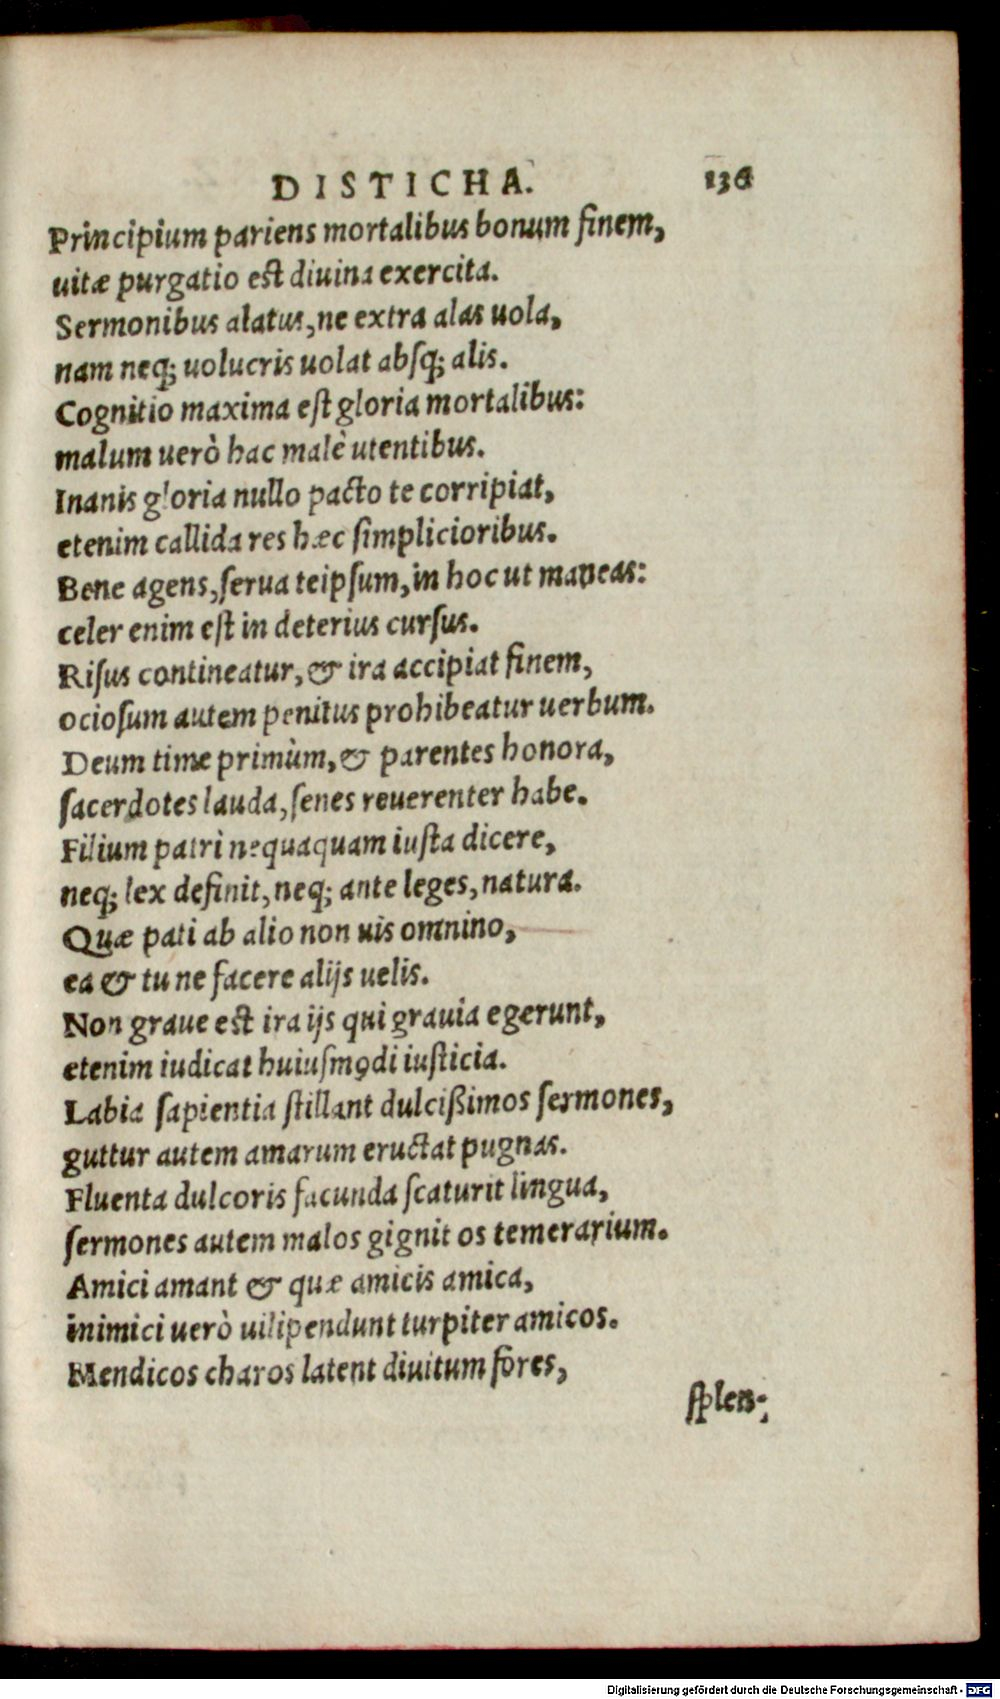 DISTICHA. 136
Principium pariens mortalibus bonum finem,
uitæ purgatio est diuina exercita.
Sermonibus alatus, ne extra alas uola,
nam neq; uolucris uolat absq; alis.
Cognitio maxima est gloria mortalibus:
malum uerò hac malè utentibus.
Inanis gloria nullo pacto te corripiat,
etenim callida res hæc simplicioribus.
Bene agens, serua teipsum, in hoc ut maneas:
celer enim est in deterius cursus.
Risus contineatur, & ira accipiat finem,
ociosum autem penitus prohibeatur uerbum.
Deum time primùm, & parentes honora,
sacerdotes lauda, senes reuerenter habe.
Filium patri nequaquam iusta dicere,
neq; lex definit, neq; ante leges, natura.
Quæ pati ab alio non uis omnino,
ea & tu ne facere alijs uelis.
Non graue est ira ijs qui grauia egerunt,
etenim iudicat huiusmodi iusticia.
Labia sapientia stillant dulcißimos sermones,
guttur autem amarum eructat pugnas.
Fluenta dulcoris facunda scaturit lingua,
sermones autem malos gignit os temerarium.
Amici amant & quæ amicis amica,
inimici uerò uilipendunt turpiter amicos.
Mendicos charos latent diuitum fores,
splen-
Digitalisierung gefördert durch die Deutsche Forschungsgemeinschaft - DFG